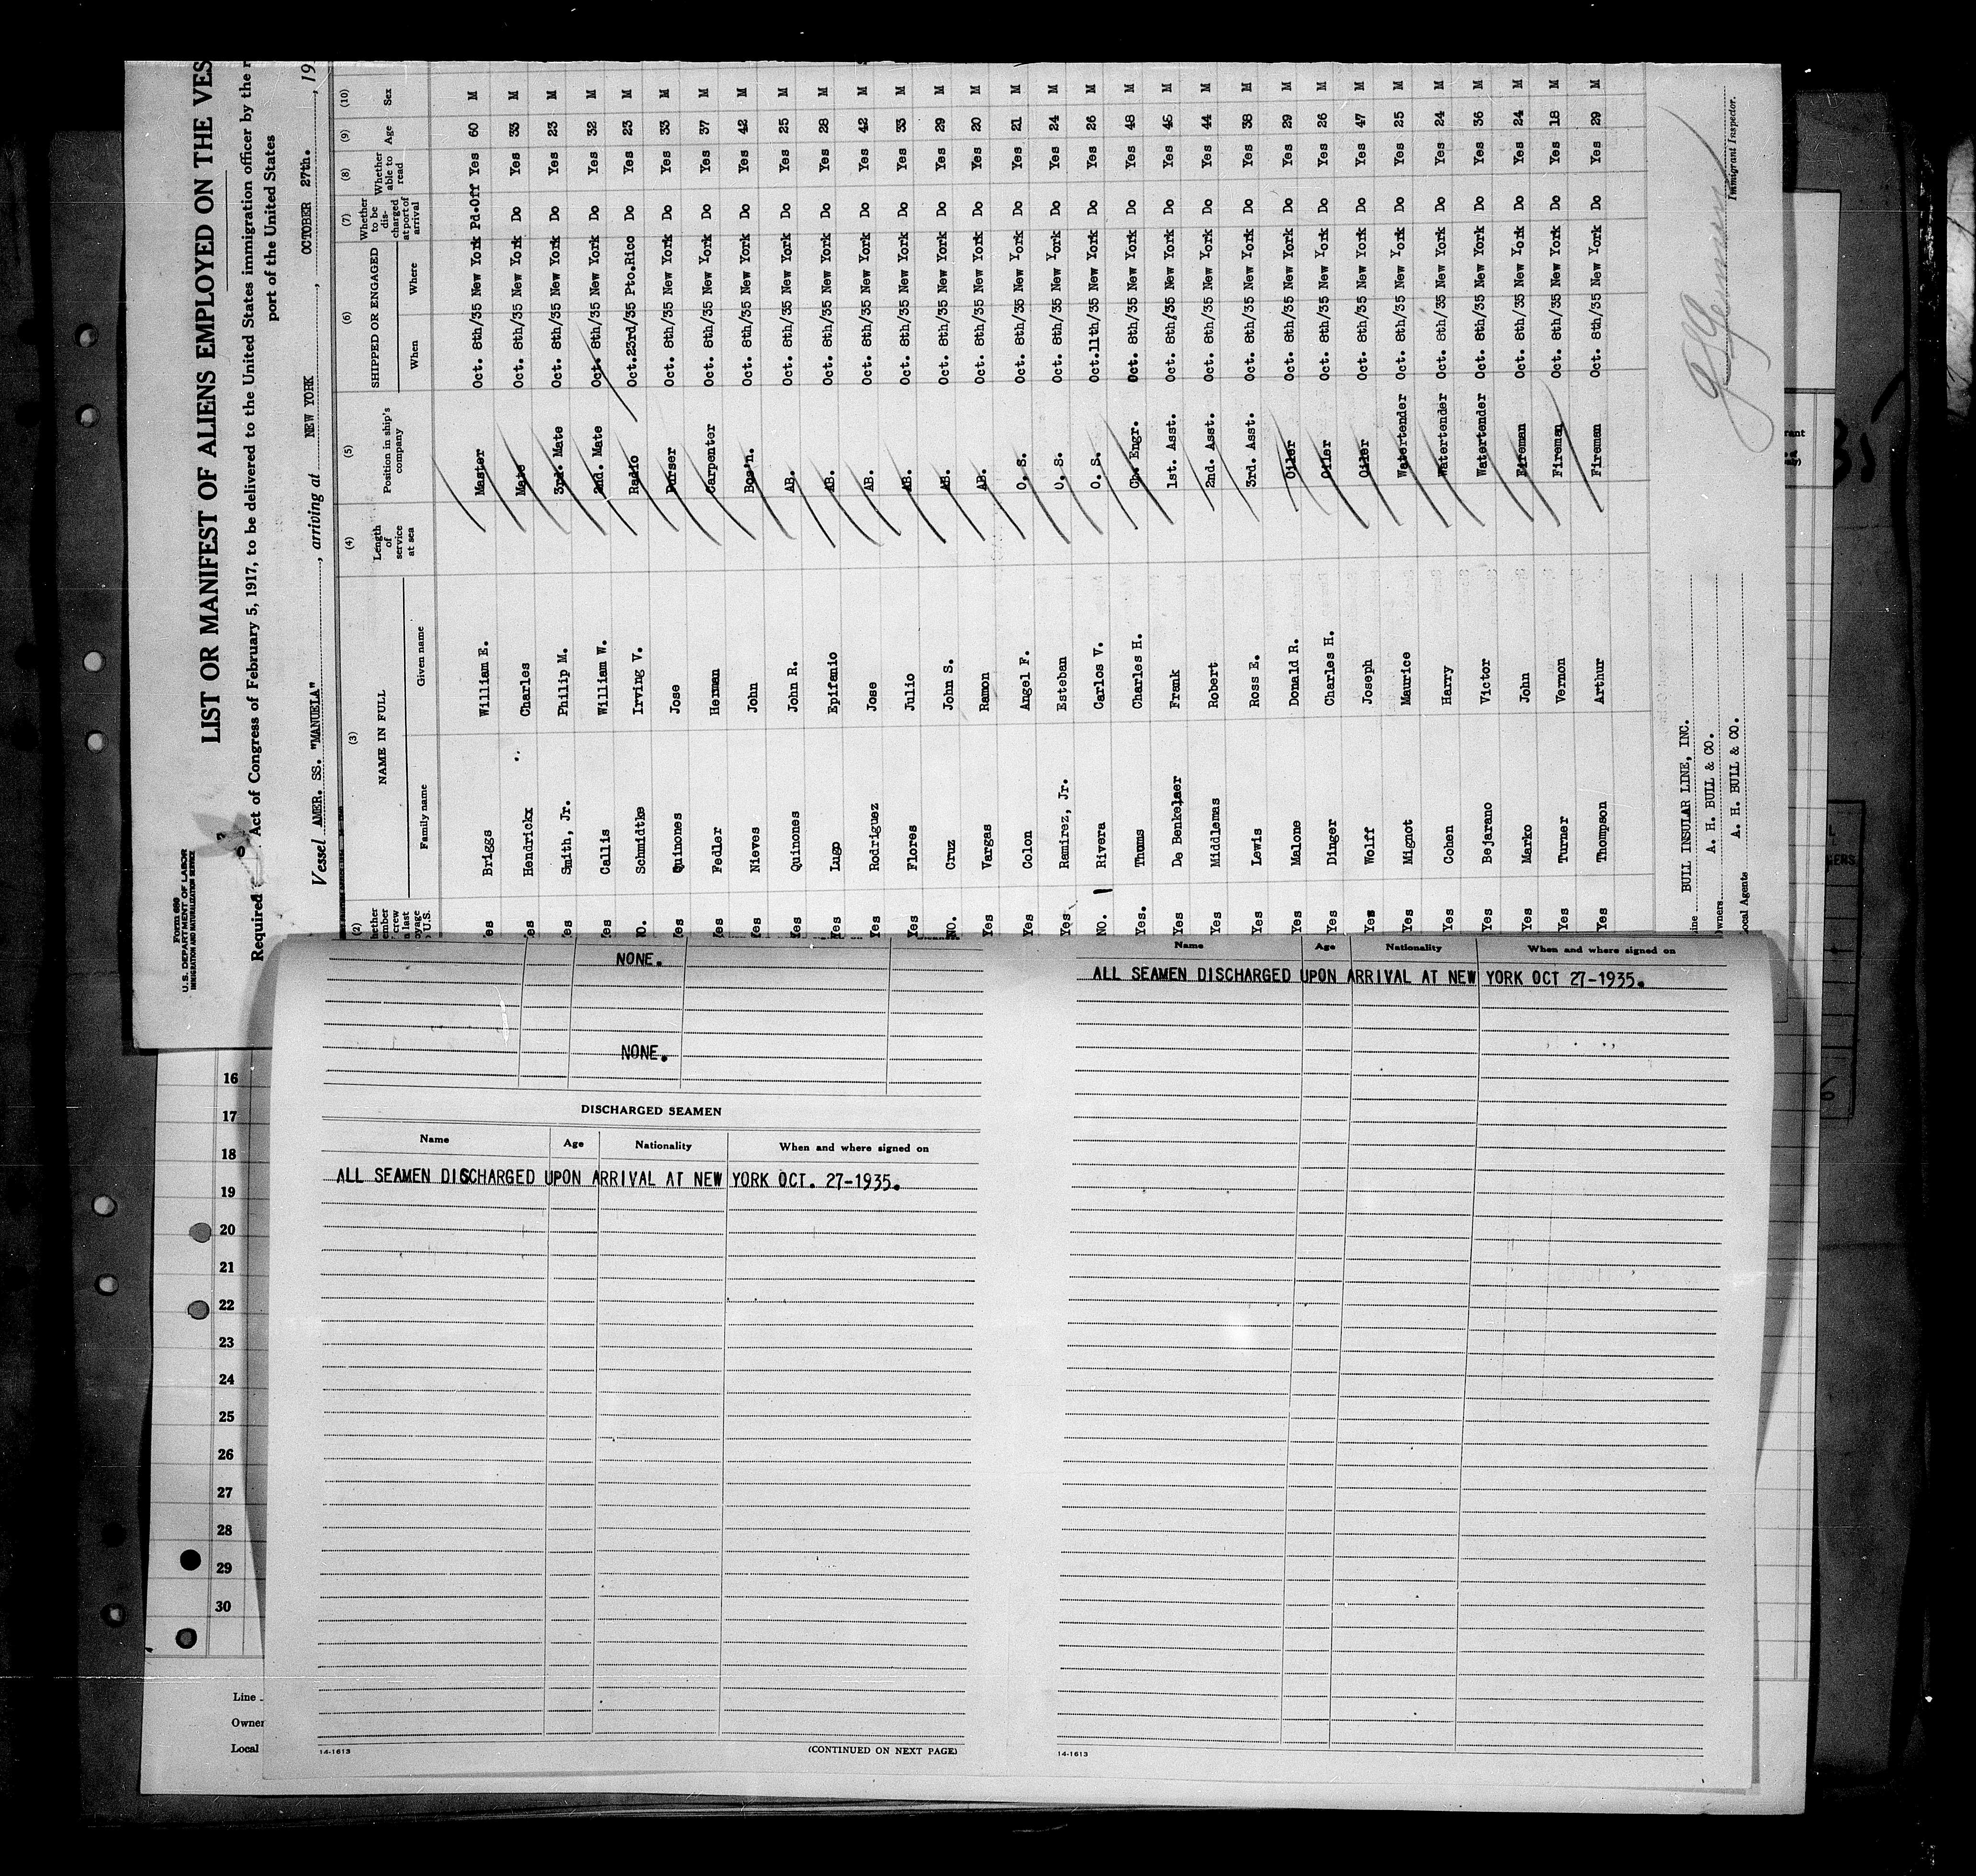 Form 689
U. S. DEPARTMENT OF LABOR
IMMIGRATION AND NATURALIZATION SERVICE
LIST OR MANIFEST OF ALIENS EMPLOYED ON THE VES
Required Act of Congress of February 5, 1917, to be delivered to the United States immigration officer by the r
port of the United States
Vessel AMER. SS. "MANUELA", arriving at NEW YORK, OCTOBER 27th., 19
(2) (3) (4) (5) (6) (7) (8) (9) (10)
NAME IN FULL
Family name Given name
Length of service at sea
Position in ship's company
SHIPPED OR ENGAGED
When Where
Whether to be discharged at port of arrival
Whether able to read
Age
Sex
es Briggs William E. Master Oct. 8th/35 New York Pd.Off Yes 60 M
es Hendrickx Charles Mate Oct. 8th/35 New York Do Yes 33 M
es Smith, Jr. Philip M. 3rd. Mate Oct. 8th/35 New York Do Yes 23 M
es Callis William W. 2nd. Mate Oct. 8th/35 New York Do Yes 32 M
NO. Schmidtke Irving V. Radio Oct.23rd/35 Pto.Rico Do Yes 23 M
Yes Quinones Jose Purser Oct. 8th/35 New York Do Yes 33 M
Yes Fedler Herman Carpenter Oct. 8th/35 New York Do Yes 37 M
Yes Nieves John Bos'n. Oct. 8th/35 New York Do Yes 42 M
Yes Quinones John R. AB. Oct. 8th/35 New York Do Yes 25 M
Yes Lugo Epifanio AB. Oct. 8th/35 New York Do Yes 28 M
Yes Rodriguez Jose AB. Oct. 8th/35 New York Do Yes 42 M
Yes Flores Julio AB. Oct. 8th/35 New York Do Yes 33 M
NO. Cruz John S. AB. Oct. 8th/35 New York Do Yes 29 M
Yes Vargas Ramon AB. Oct. 8th/35 New York Do Yes 20 M
Yes Colon Angel F. O. S. Oct. 8th/35 New York Do Yes 21 M
Yes Ramirez, Jr. Esteban O. S. Oct. 8th/35 New York Do Yes 24 M
NO. Rivera Carlos V. O. S. Oct.11th/35 New York Do Yes 26 M
Yes. Thoms Charles H. Ch. Engr. Oct. 8th/35 New York Do Yes 48 M
Yes De Benkelaer Frank 1st. Asst. Oct. 8th/35 New York Do Yes 45 M
Yes Middlemas Robert 2nd. Asst. Oct. 8th/35 New York Do Yes 44 M
Yes Lewis Ross E. 3rd. Asst. Oct. 8th/35 New York Do Yes 38 M
Yes Malone Donald R. Oiler Oct. 8th/35 New York Do Yes 29 M
Yes Dinger Charles H. Oiler Oct. 8th/35 New York Do Yes 26 M
Yes Wolff Joseph Oiler Oct. 8th/35 New York Do Yes 47 M
Yes Mignot Maurice Watertender Oct. 8th/35 New York Do Yes 25 M
Yes Cohen Harry Watertender Oct. 8th/35 New York Do Yes 24 M
Yes Bejarano Victor Watertender Oct. 8th/35 New York Do Yes 36 M
Yes Marko John Fireman Oct. 8th/35 New York Do Yes 24 M
Yes Turner Vernon Fireman Oct. 8th/35 New York Do Yes 18 M
Yes Thompson Arthur Fireman Oct. 8th/35 New York Do Yes 29 M
Line BULL INSULAR LINE, INC.
Owners A. H. BULL & CO.
Local Agents A. H. BULL & CO.
Immigrant Inspector.
NONE.
NONE.
DISCHARGED SEAMEN
Name Age Nationality When and where signed on
ALL SEAMEN DISCHARGED UPON ARRIVAL AT NEW YORK OCT. 27-1935.
14-1613
(CONTINUED ON NEXT PAGE)
Name Age Nationality When and where signed on
ALL SEAMEN DISCHARGED UPON ARRIVAL AT NEW YORK OCT 27-1935.
14-1613
16
17
18
19
20
21
22
23
24
25
26
27
28
29
30
Line
Owner
Local